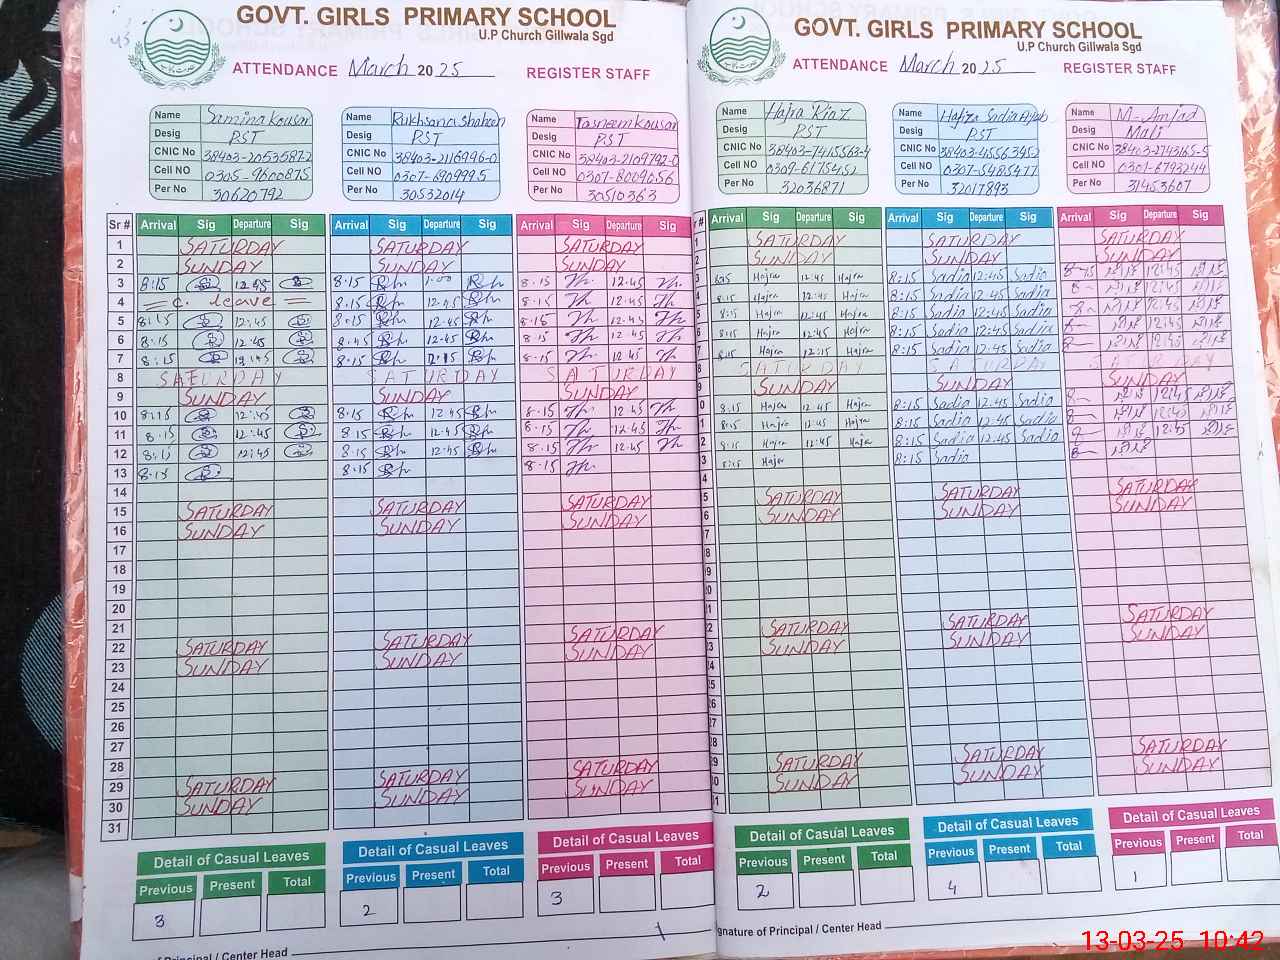 GOVT. GIRLS PRIMARY SCHOOL
U.P Church Gillwala Sgd
ATTENDANCE March 2025 REGISTER STAFF
Name Samina Kousar
Desig PST
CNIC No 38403-2053587-2
Cell NO 0305-9600875
Per No 30620792
Name Rukhsana Shaheen
Desig PST
CNIC No 38403-2116996-0
Cell NO 0307-6909995
Per No 30532014
Name Tasneem Kousar
Desig PST
CNIC No 38403-2109792-0
Cell NO 0307-8009056
Per No 30510363
Sr # Arrival Sig Departure Sig Arrival Sig Departure Sig Arrival Sig Departure Sig
1 SATURDAY SATURDAY SATURDAY
2 SUNDAY SUNDAY SUNDAY
3 8:15 12:45 8.15 1:00 8.15 12.45
4 = C. leave = 8.15 12.45 8.15 12.45
5 8:15 12:45 8.15 12.45 8.15 12.45
6 8:15 12:45 8.15 12.45 8.15 12.45
7 8:15 12:45 8.15 12.15 8.15 12.45
8 SATURDAY SATURDAY SATURDAY
9 SUNDAY SUNDAY SUNDAY
10 8:15 12:45 8.15 12.45 8.15 12.45
11 8.15 12:45 8.15 12.45 8.15 12.45
12 8:15 12:45 8.15 12.45 8.15 12.45
13 8:15 8.15 8.15
14
15 SATURDAY SATURDAY SATURDAY
16 SUNDAY SUNDAY SUNDAY
17
18
19
20
21
22 SATURDAY SATURDAY SATURDAY
23 SUNDAY SUNDAY SUNDAY
24
25
26
27
28
29 SATURDAY SATURDAY SATURDAY
30 SUNDAY SUNDAY SUNDAY
31
Detail of Casual Leaves Detail of Casual Leaves Detail of Casual Leaves
Previous Present Total Previous Present Total Previous Present Total
3 2 3
of Principal / Center Head
GOVT. GIRLS PRIMARY SCHOOL
U.P Church Gillwala Sgd
ATTENDANCE March 2025 REGISTER STAFF
Name Hajra Riaz
Desig PST
CNIC No 38403-7415563-4
Cell NO 0309-6175452
Per No 32036871
Name Hafiza Sadia Ayub
Desig PST
CNIC No 38403-4556395-2
Cell NO 0307-5485477
Per No 32017893
Name M-Amjad
Desig Mali
CNIC No 38403-2743165-5
Cell NO 0301-6793244
Per No 31453607
# Arrival Sig Departure Sig Arrival Sig Departure Sig Arrival Sig Departure Sig
1 SATURDAY SATURDAY SATURDAY
2 SUNDAY SUNDAY SUNDAY
3 8:15 Hajra 12:45 Hajra 8:15 Sadia 12:45 Sadia 12:45
4 8:15 Hajra 12:45 Hajra 8:15 Sadia 12:45 Sadia 12:45
5 8:15 Hajra 12:45 Hajra 8:15 Sadia 12:45 Sadia 12:45
6 8:15 Hajra 12:45 Hajra 8:15 Sadia 12:45 Sadia 12:45
7 8:15 Hajra 12:15 Hajra 8:15 Sadia 12:45 Sadia 12:45
8 SATURDAY SATURDAY SATURDAY
9 SUNDAY SUNDAY SUNDAY
0 8:15 Hajra 12:45 Hajra 8:15 Sadia 12:45 Sadia 12:45
1 8:15 Hajra 12:45 Hajra 8:15 Sadia 12:45 Sadia 12:45
2 8:15 Hajra 12:45 Hajra 8:15 Sadia 12:45 Sadia 12:45
3 8:15 Hajra 8:15 Sadia
4
5 SATURDAY SATURDAY SATURDAY
6 SUNDAY SUNDAY SUNDAY
7
8
9
0
1
2 SATURDAY SATURDAY SATURDAY
3 SUNDAY SUNDAY SUNDAY
4
5
6
7
8
9 SATURDAY SATURDAY SATURDAY
0 SUNDAY SUNDAY SUNDAY
1
Detail of Casual Leaves Detail of Casual Leaves Detail of Casual Leaves
Previous Present Total Previous Present Total Previous Present Total
2 4 1
gnature of Principal / Center Head
13-03-25 10:42